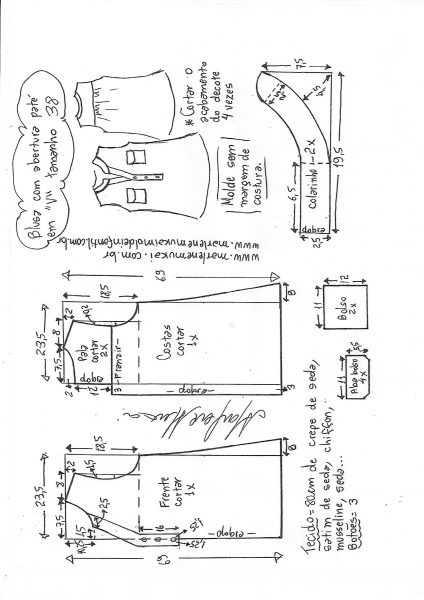 Blusa com abertura patê
em "V" tamanho 38
www.marlenemukai.com.br
www.marlenemukaimoldeinfantil.com.br
* Cortar o
acabamento
do decote
4 vezes
Molde sem
margem de
costura.
7,5
Colarinho - 2x
6,5
19,5
dobra
2,5
69
18,5
23,5
8
7,5
2
Pala
cortar
2x
dobra
2
12
3
Franzir
Costas
cortar
1x
dobra
8
3
11
12
Bolso
2x
11
5,5
Aba bolso
4x
18,5
23,5
8
7,5
2
1,5
2,5
Frente
cortar
1x
16
1,25
1,25
dobra
8
69
Tecido = além de crepe de seda,
satim de seda, chiffon,
musseline, seda...
Botões: 3